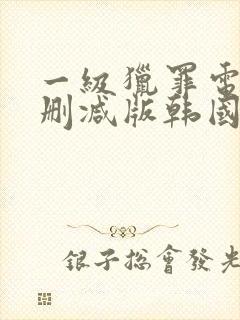 一級獵罪電
刪減版韩國
銀子総會發光